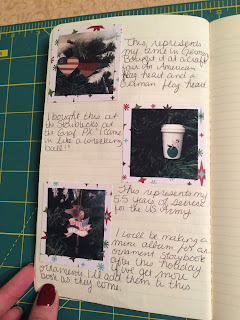 This represents
my time in Germany.
Bought it at a craft
fair. An American
flag heart and a
German flag heart.
I bought this at
the Starbucks at
the Graf. PX. I came
in like a wrecking
ball!!
This represents my
5.5 years of service
for the US Army.
I will be making a
mini album for an
ornament storybook
after this holiday.
If I get more
ornaments I'll add them to this
book as they come.